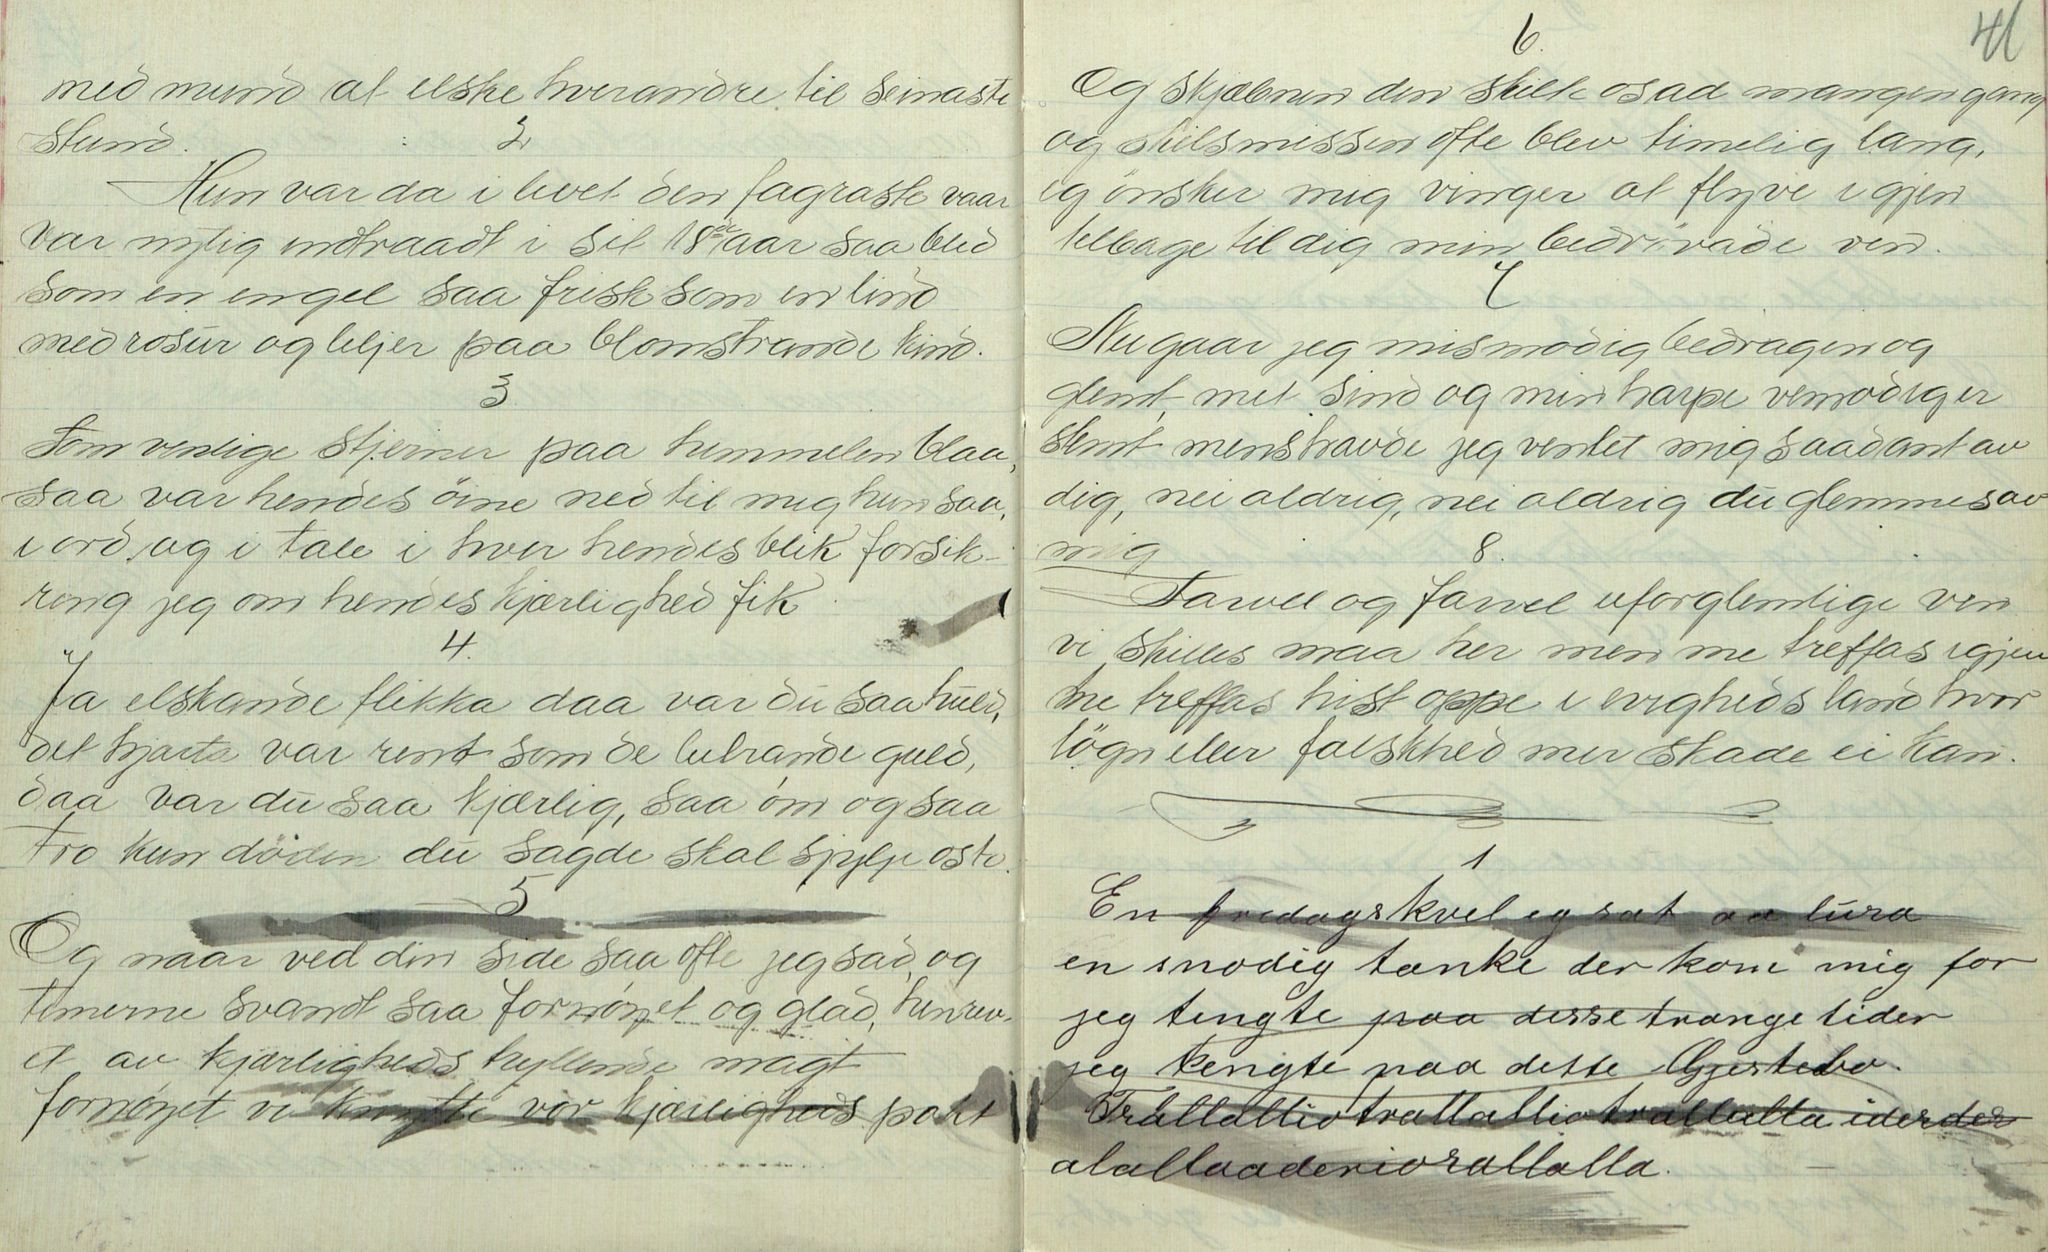 med mund at elske hverandre til seinaste
stund.
2
Hun var da i livet den fagraste vaar
var nylig indtraadt i sit 18de aar saa blid
som en engel saa frisk som en lind
med rosur og liljer paa blomstrande kind.
3
Som venlige stjerner paa himmelen blaa,
saa var hendes öine ned til mig hun saa,
i ord og i tale i hver hendes blik forsik-
ring jeg om hendes kjærlighed fik
4.
Ja elskande flikka daa var du saa huld,
det hjarta var rent som de lutrande guld,
daa var du saa kjærlig, saa öm og saa
tro kun döden du sagde skal skjylje osto.
5
Og naar ved din side saa ofte jeg sad, og
timerne svandt saa fornöyet og glad, henrev-
et av kjærligheds hyllende magt
fornöyet vi knytte vor kjærligheds pakt
41
6.
Og skjæbnen den skilte osad mangen gang
og skilsmissen ofte blev timelig lang,
eg önsker mig vinger at flyve igjen
tilbage til dig min bedrövade ven.
7
Nu gaar jeg mismodig bedragen og
glemt, mit sind og min harpe vemodig er
stemt mens havde jeg ventet mig saadant av
dig, nei aldrig, nei aldrig du glemmes av
mig
8.
Farvel og farvel uforglemlige ven
vi skilles maa her men me treffas igjen
me treffas hist oppe i evigheds land hvor
lögn eller falskhed mer skade ei kan.
1
En fredagskvel eg sat aa lura
en snodig tanke der kom mig for
jeg tengte paa desse trange tider
jeg tengte paa dette Gjestebo.
Trallallio trallallio trallalla iderder
alallaaderiorallalla.